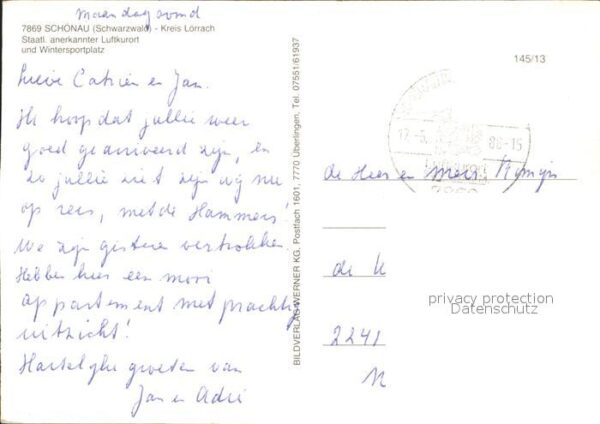 Maandag avond
7869 SCHÖNAU (Schwarzwald) - Kreis Lörrach
Staatl. anerkannter Luftkurort
und Wintersportplatz
145/13
Lieve Catrien en Jan.
Ik hoop dat jullie weer
goed gearriveerd zijn, en
zo jullie ziet zijn wij nu
op reis, met de Hammers!
We zijn gisteren vertrokken.
Hebben hier een mooi
appartement met prachtig
uitzicht!
Hartelyke groeten van
Jan en Adri
BILDVERLAG WERNER KG, Postfach 1601, 7770 Überlingen, Tel. 07551/61937
12.-5. 86-15
7869
de Heer en Mevr.
de K
2241
N
privacy protection
Datenschutz